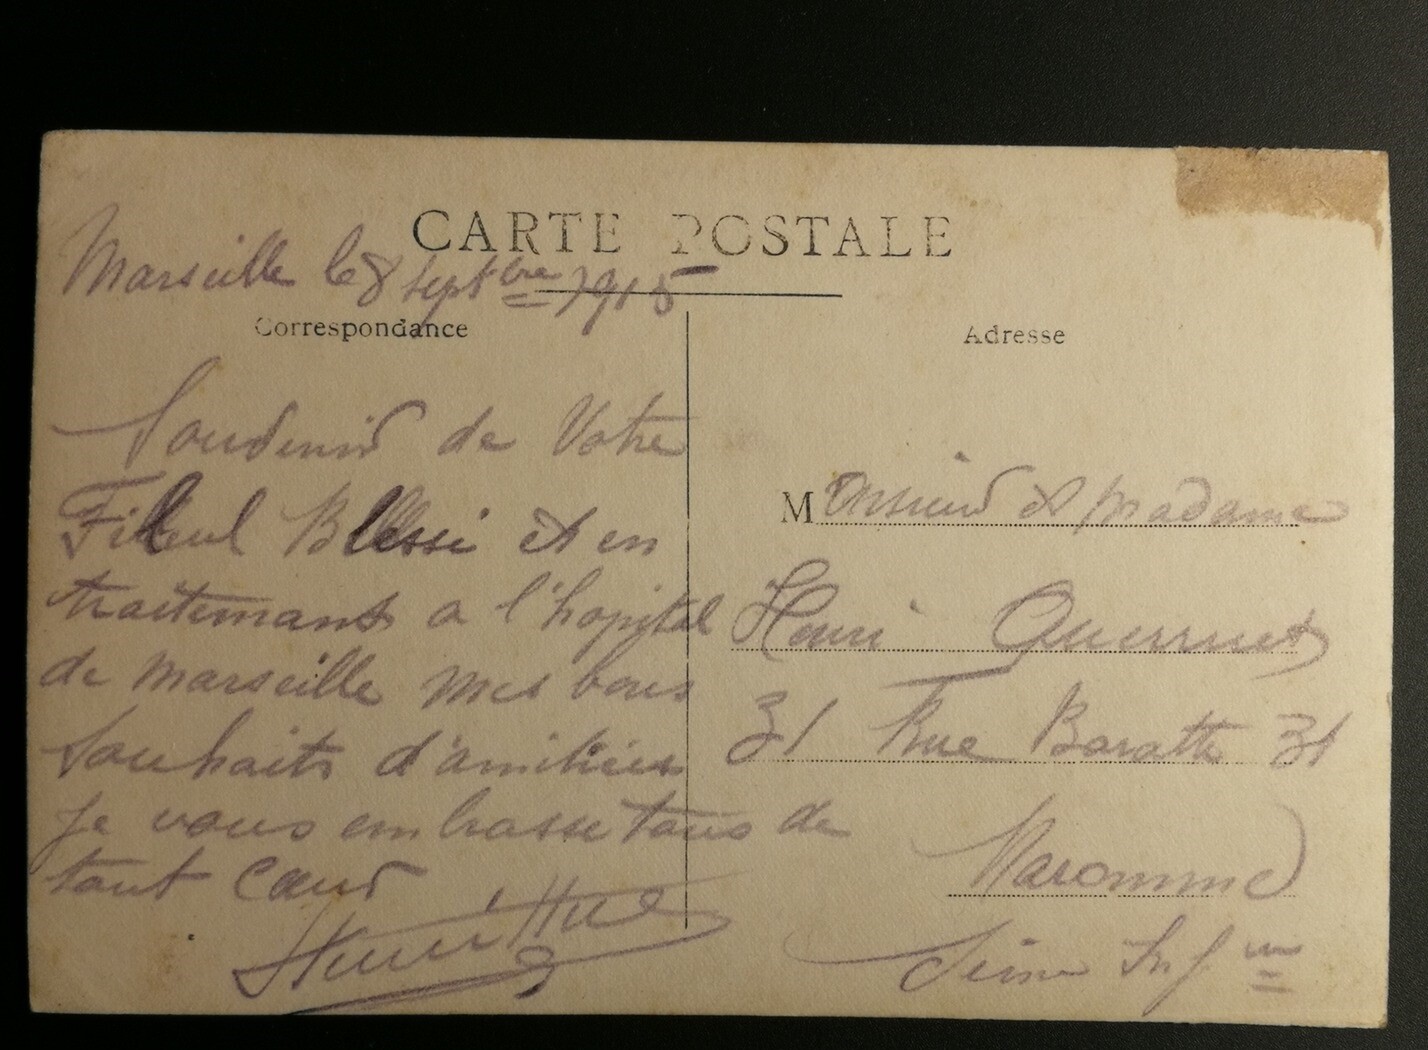 CARTE POSTALE
Marseille le 8 sept bre 1915
Correspondance
Souvenir de Votre
Filleul Blessé et en
traitemant a l'hopital
de Marseille mes bons
souhaits d'amitiés
je vous embrasse tous de
tout Cœur
Henri Hue
Adresse
Monsieur et Madame
Henri Querruet
31 Rue Baratte 31
Maromme
Seine Inf